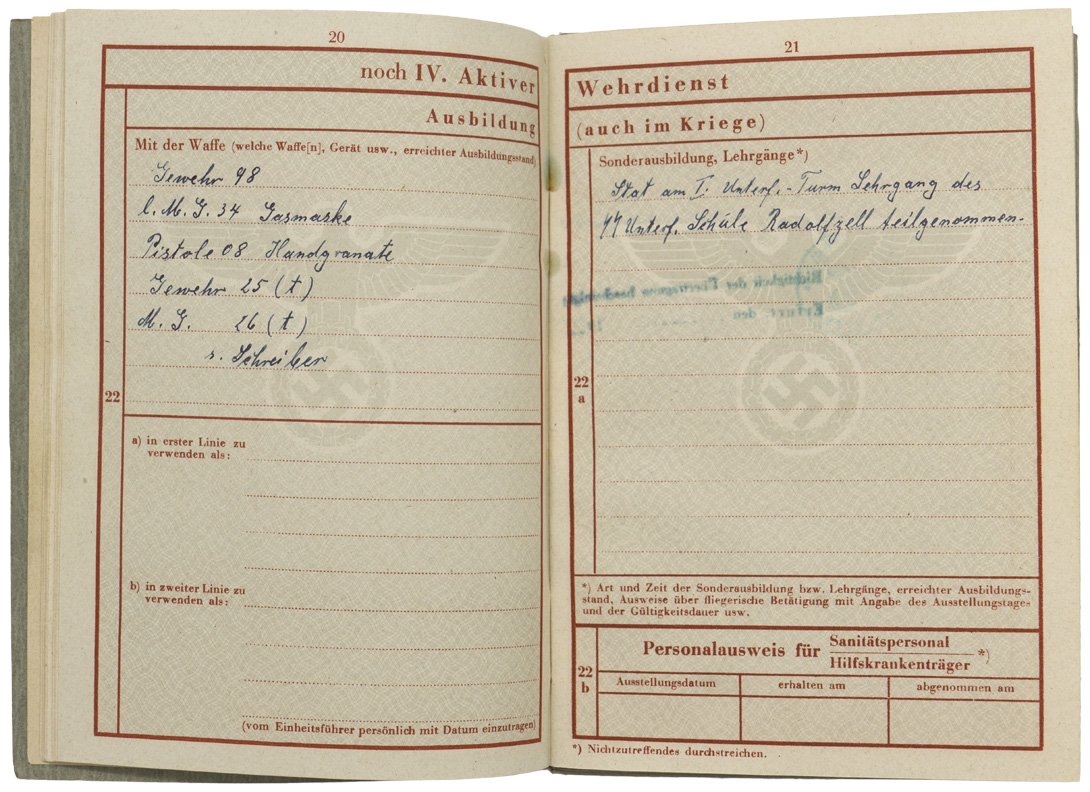 20
noch IV. Aktiver
Ausbildung
Mit der Waffe (welche Waffe[n], Gerät usw., erreichter Ausbildungsstand)
Gewehr 98
l. M. G. 34 Gasmaske
Pistole 08 Handgranate
Gewehr 25 (t)
M. G. 26 (t)
s. Schreiber
22
a) in erster Linie zu
verwenden als:
b) in zweiter Linie zu
verwenden als:
(vom Einheitsführer persönlich mit Datum einzutragen)
21
Wehrdienst
(auch im Kriege)
Sonderausbildung, Lehrgänge*)
Hat am I. Unterf.-Turm Lehrgang des
ϟϟ Unterf. Schule Radolfzell teilgenommen.
Richtigkeit der Übertragung bescheinigt
Erfurt, den
22
a
*) Art und Zeit der Sonderausbildung bzw. Lehrgänge, erreichter Ausbildungs-
stand, Ausweise über fliegerische Betätigung mit Angabe des Ausstellungstages
und der Gültigkeitsdauer usw.
22
b
Personalausweis für Sanitätspersonal
Hilfskrankenträger *)
Ausstellungsdatum erhalten am abgenommen am
*) Nichtzutreffendes durchstreichen.